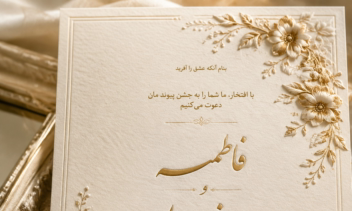 بنام آنکه عشق را آفرید
با افتخار، ما شما را به جشن پیوند مان
دعوت می‌کنیم
فاطمه
و